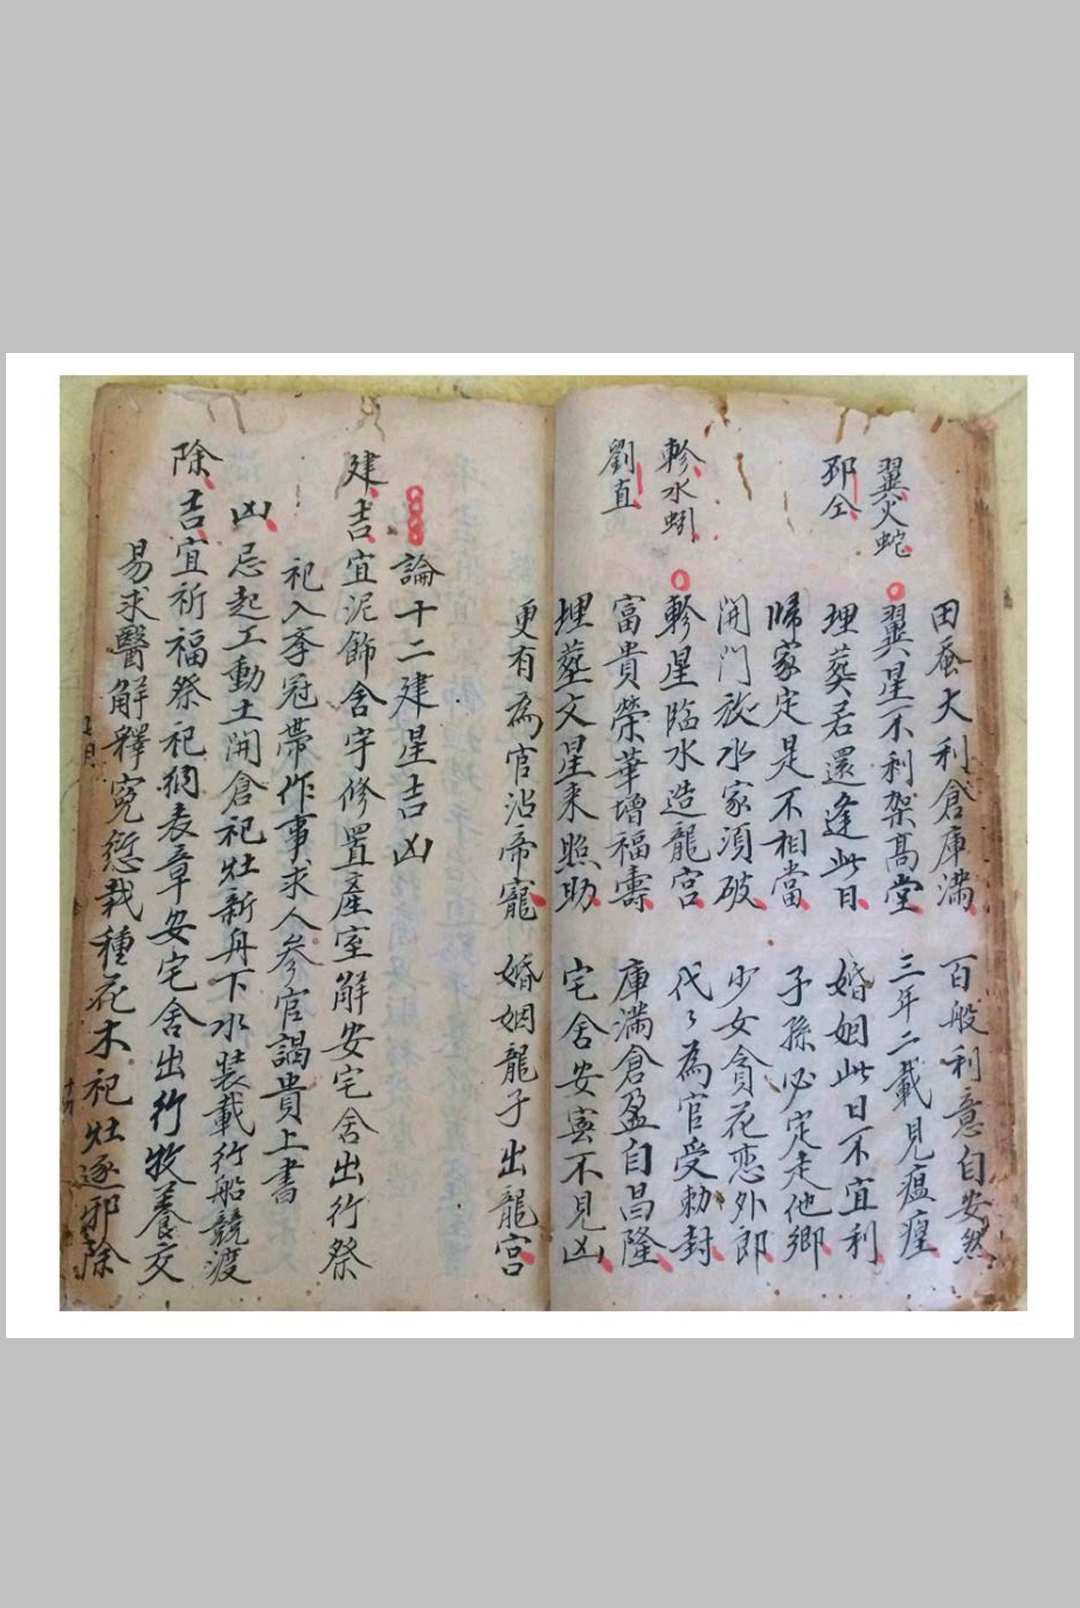 田蚕大利倉庫滿 百般利意自安然
翼火蛇
翼星不利架高堂 三年二載見瘟㾮
邳仝
埋葬若還逢此日 婚姻此日不宜利
歸家定是不相當 子孫必定走他鄉
開門放水家須破 少女貪花恋外郎
軫水蚓
軫星臨水造龍宮 代々為官受勅封
劉直
富貴榮華增福壽 庫滿倉盈自昌隆
埋葬文星来照助 宅舍安寧不見凶
更有為官沾帝寵 婚姻龍子出龍宮
論十二建星吉凶
建吉宜泥飾舍宇修置產室解安宅舍出行祭
祀入孝冠帶作事求人参官謁貴上書
凶忌起工動土開倉祀灶新舟下水裝載行船競渡
除吉宜祈福祭祀表章安宅舍出行牧養交
易求醫解釋冤愆栽種花木祀灶逐邪除